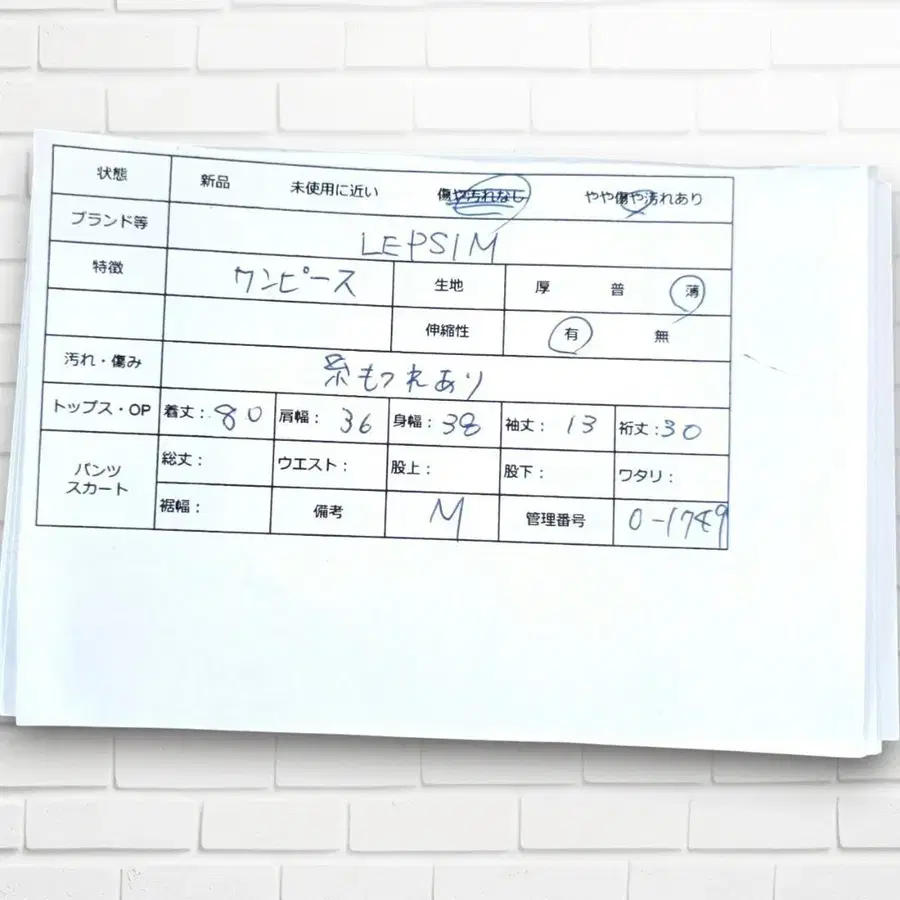 状態 新品 未使用に近い 傷や汚れなし やや傷や汚れあり
ブランド等 LEPSIM
特徴 ワンピース 生地 厚 普 薄
伸縮性 有 無
汚れ・傷み 糸もつれあり
トップス・OP 着丈:80 肩幅:36 身幅:38 袖丈:13 裄丈:30
パンツ スカート 総丈: ウエスト: 股上: 股下: ワタリ:
裾幅: 備考 M 管理番号 0-1749